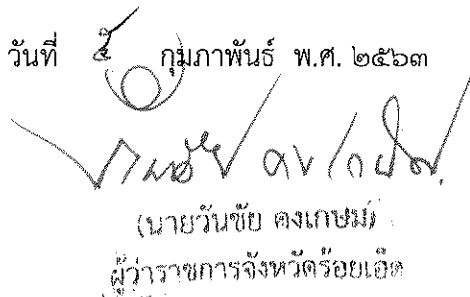 วันที่ ๕ กุมภาพันธ์ พ.ศ. ๒๕๖๓
(นายวันชัย คงเกษม)
ผู้ว่าราชการจังหวัดร้อยเอ็ด